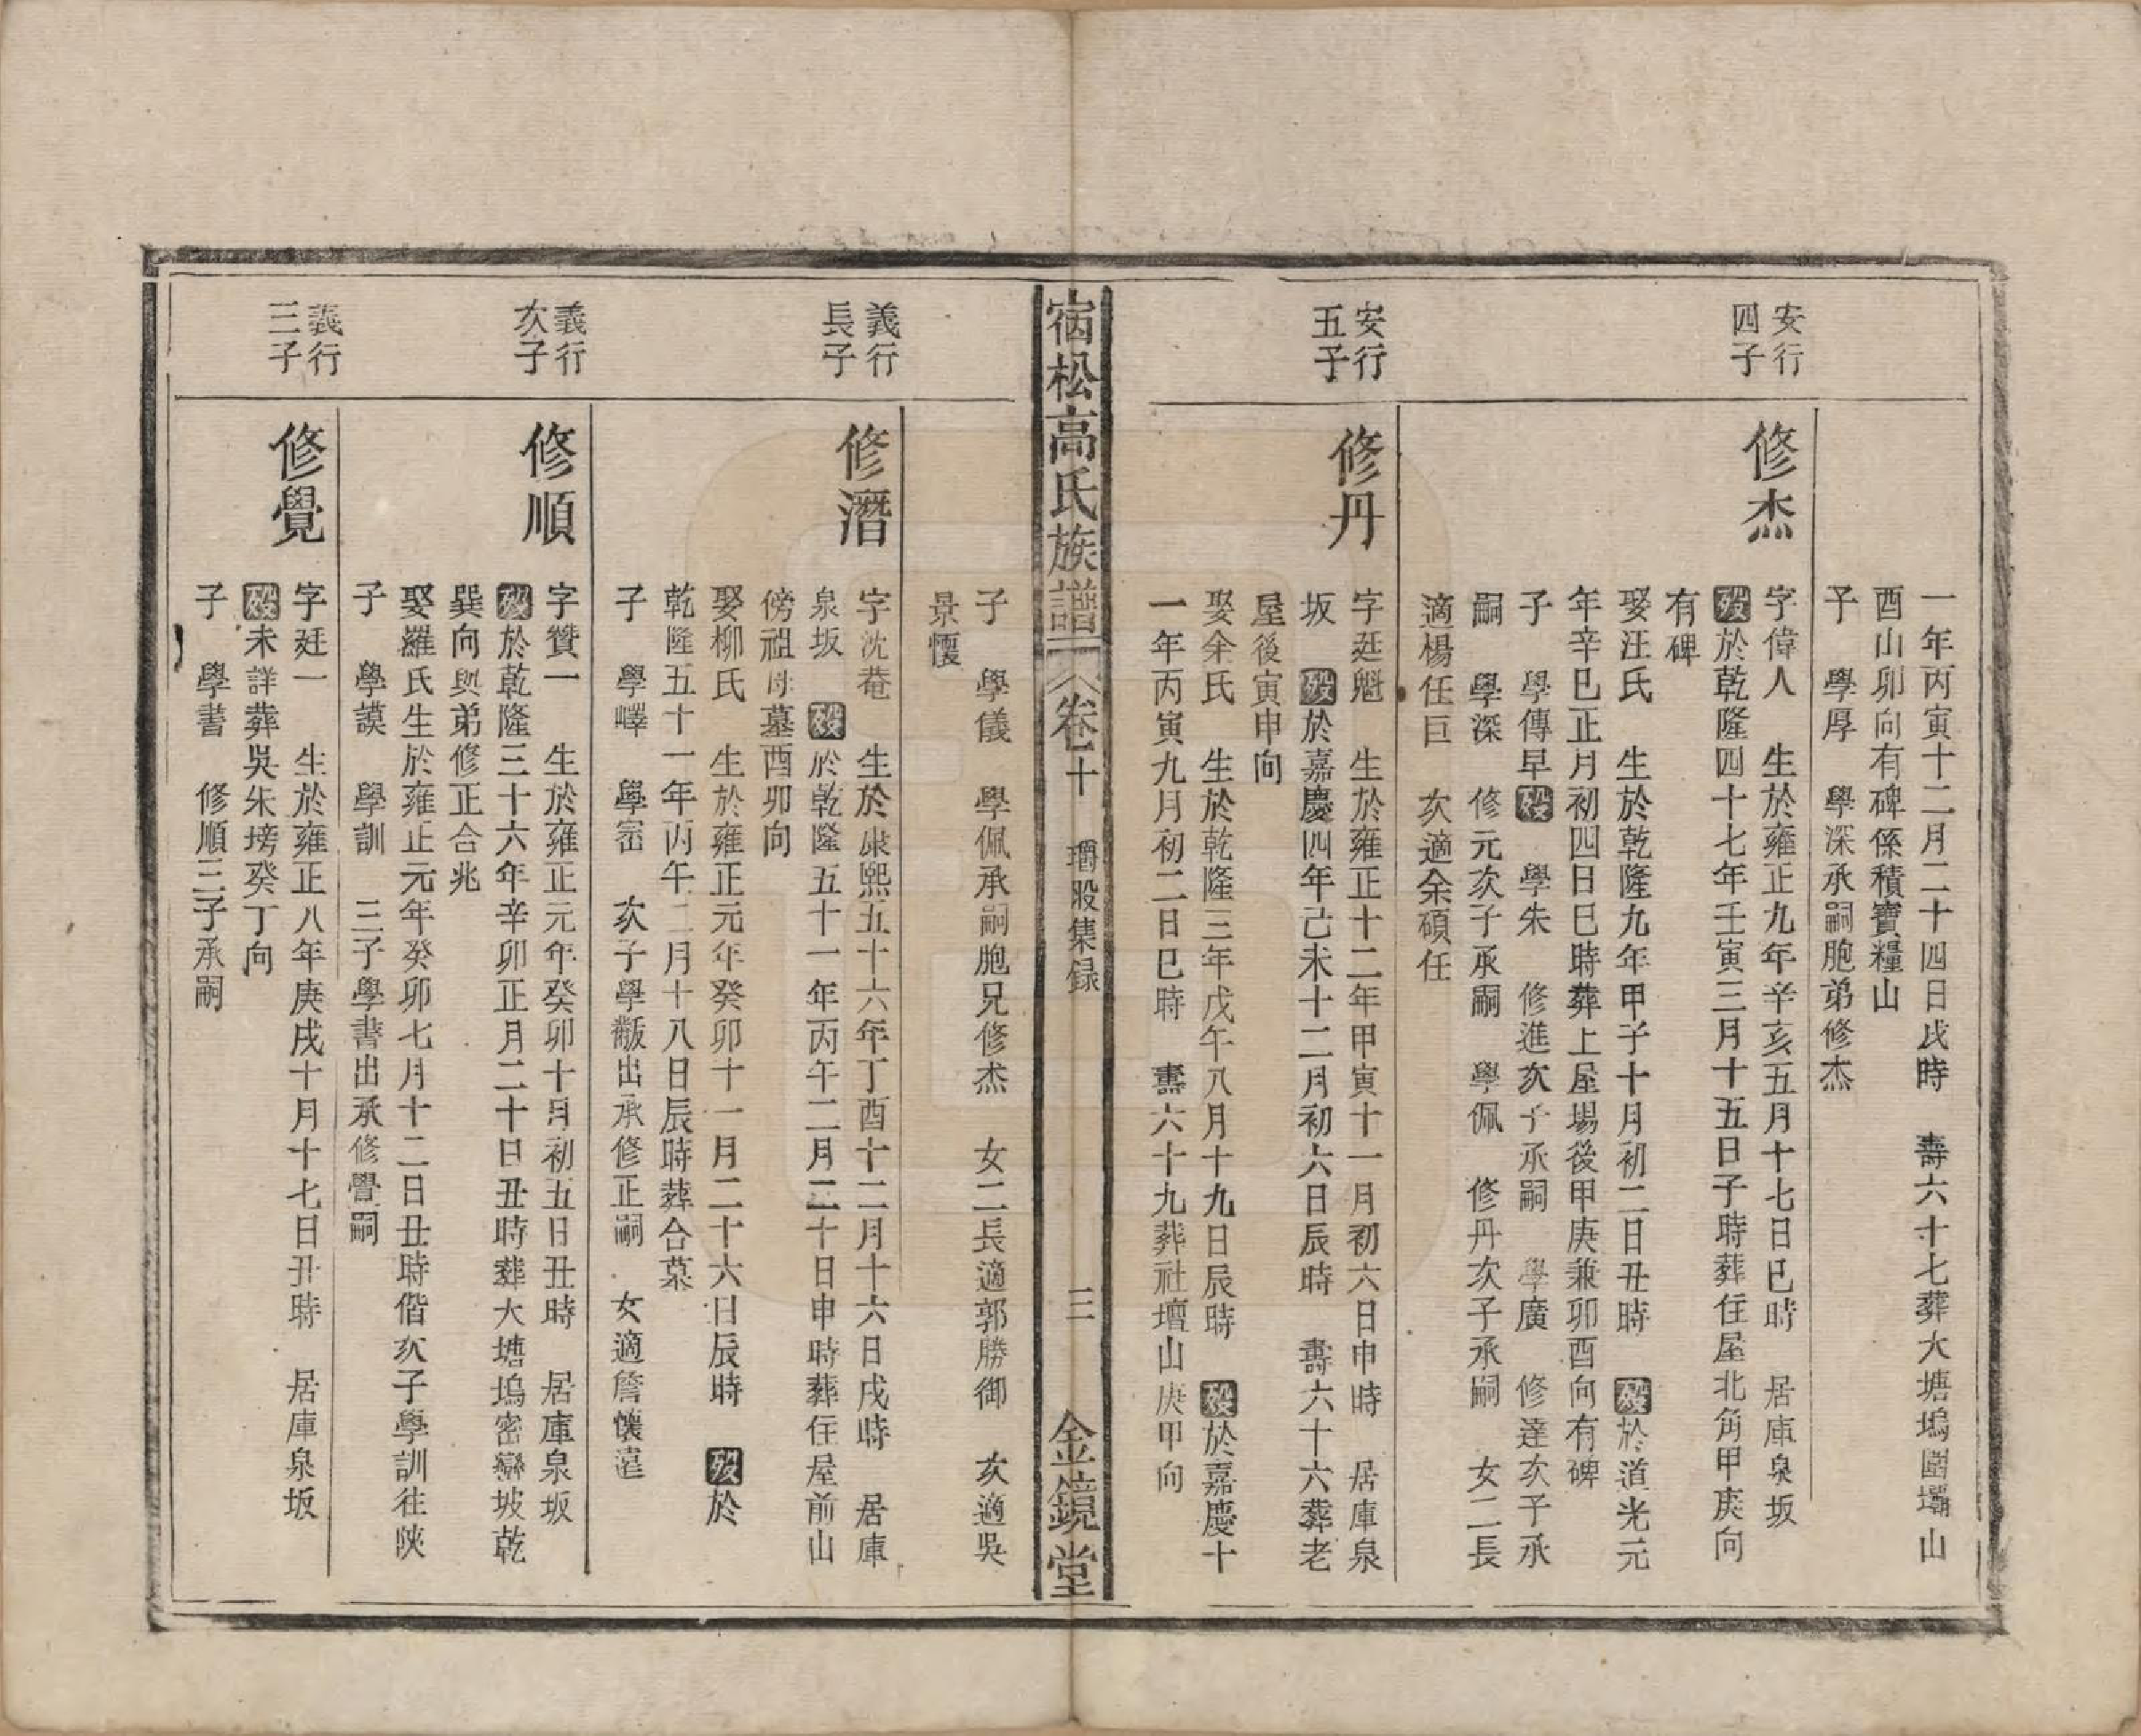 一年丙寅十二月二十四日戌時　壽六十七葬大塘塢圍壩山
酉山卯向有碑係積寶糧山
子　學厚　學深承嗣胞弟修杰
安行
四子
修杰
字偉人　生於雍正九年辛亥五月十七日巳時　居庫泉坂
歿於乾隆四十七年壬寅三月十五日子時葬住屋北角甲庚向
有碑
娶汪氏　生於乾隆九年甲子十月初二日丑時　歿於道光元
年辛巳正月初四日巳時葬上屋場後甲庚兼卯酉向有碑
子　學傳早歿　學朱　修進次子承嗣　學廣　修達次子承
嗣　學深　修元次子承嗣　學佩　修丹次子承嗣　女二長
適楊任巨　次適余碩任
安行
五子
修丹
字廷魁　生於雍正十二年甲寅十一月初六日申時　居庫泉
坂　歿於嘉慶四年己未十二月初六日辰時　壽六十六葬老
屋後寅申向
娶余氏　生於乾隆三年戊午八月十九日辰時　歿於嘉慶十
一年丙寅九月初二日巳時　壽六十九葬社壇山庚甲向
宿松高氏族譜　卷十　琄股集録　三　金鏡堂
子　學儀　學佩承嗣胞兄修杰　女二長適郭勝御　次適吳
景懷
義行
長子
修潛
字沈菴　生於康熙五十六年丁酉十二月十六日戌時　居庫
泉坂　歿於乾隆五十一年丙午二月二十日申時葬住屋前山
傍祖母墓酉卯向
娶柳氏　生於雍正元年癸卯十一月二十六日辰時　歿於
乾隆五十一年丙午二月十八日辰時葬合墓
子　學嶧　學崈　次子學黻出承修正嗣　女適詹懷瀍
義行
次子
修順
字贊一　生於雍正元年癸卯十月初五日丑時　居庫泉坂
歿於乾隆三十六年辛卯正月二十日丑時葬大塘塢密巒坡乾
巽向與弟修正合兆
娶羅氏生於雍正元年癸卯七月十二日丑時偕次子學訓往陝
子　學謨　學訓　三子學書出承修覺嗣
義行
三子
修覺
字廷一　生於雍正八年庚戌十月十七日丑時　居庫泉坂
歿未詳葬吳朱塝癸丁向
子　學書　修順三子承嗣